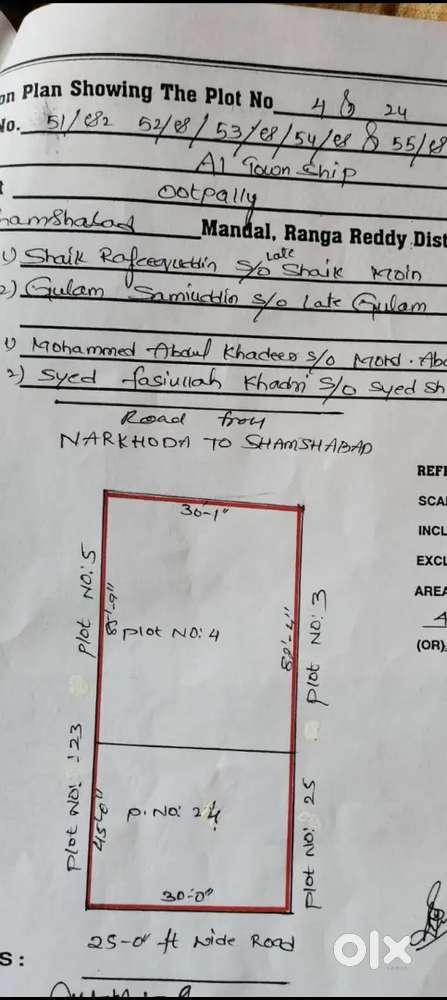 on Plan Showing The Plot No 4 & 24
No. 51/ee2 52/ee/53/ee/54/ee & 55/ee
A1 Town Ship
t Ootpally
hamshabad Mandal, Ranga Reddy Dist
1) Shaik Rafeequddin S/o Late Shaik Moin
2) Gulam Samiuddin S/o Late Gulam
1) Mohammed Abdul Khadeer S/o Mohd. Abd
2) Syed fasiullah Khadri S/o Syed Sh
Road from
NARKHODA TO SHAMSHABAD
REFE
SCAL
INCL
EXCL
AREA
(OR).
30'-1"
Plot NO: 5
Plot NO: 4
Plot NO: 3
Plot NO: 23
P. NO: 24
Plot NO: 25
45'-0"
30'-0"
25-0" ft wide Road
S:
olx